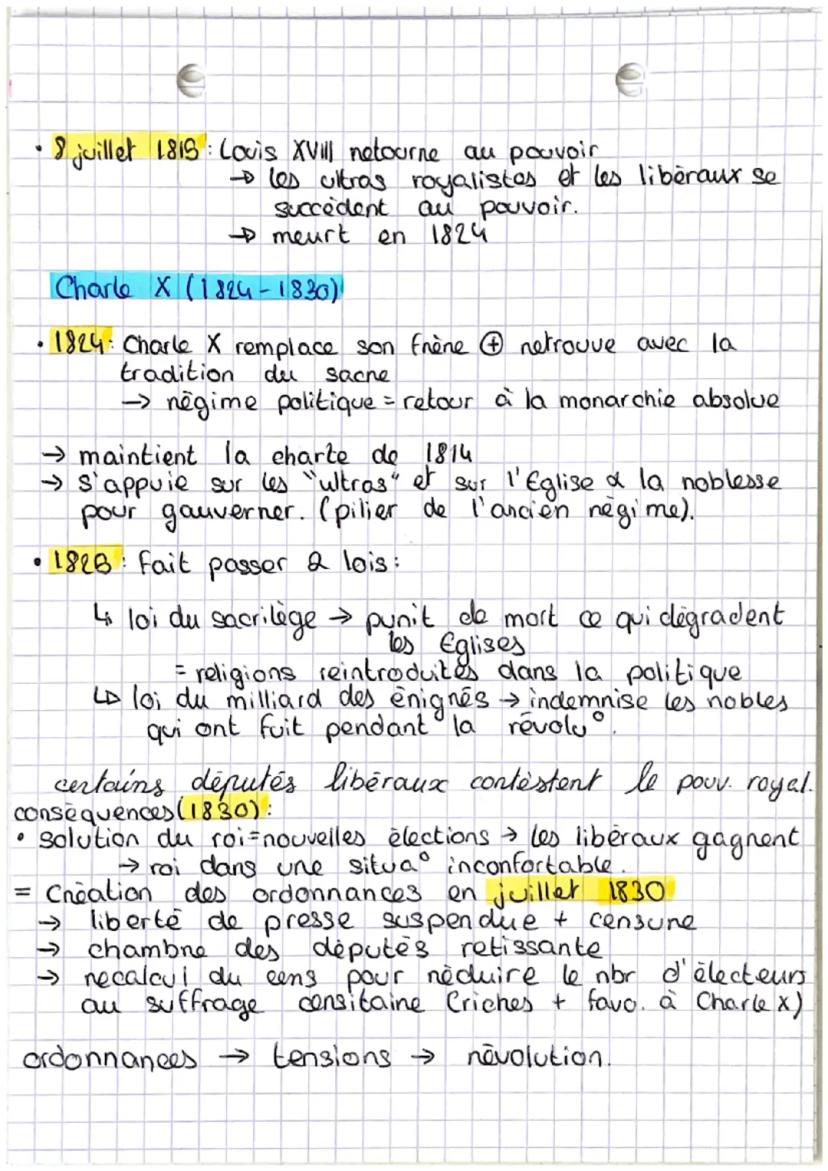 • 8 juillet 1815 : Louis XVIII retourne au pouvoir
→ les ultras royalistes et les libéraux se
succèdent au pouvoir.
→ meurt en 1824
Charle X (1824 - 1830)
• 1824 : Charle X remplace son frère ⊕ retrouve avec la
tradition du sacre
→ régime politique = retour à la monarchie absolue
→ maintient la charte de 1814
→ s'appuie sur les "ultras" et sur l'Eglise & la noblesse
pour gouverner. (pilier de l'ancien régime).
• 1825 : fait passer 2 lois :
↳ loi du sacrilège → punit de mort ce qui dégradent
les Eglises
= religions reintroduites dans la politique
↳ loi du milliard des émigrés → indemnise les nobles
qui ont fuit pendant la révolu°.
certains députés libéraux contestent le pouv. royal.
conséquences (1830) :
• solution du roi = nouvelles élections → les libéraux gagnent
→ roi dans une situa° inconfortable.
= Création des ordonnances en juillet 1830
→ liberté de presse suspendue + censure
→ chambre des députés retissante
→ recalcul du cens pour réduire le nbr d'électeurs
au suffrage censitaire (riches + favo. à Charle X)
ordonnances → tensions → révolution.